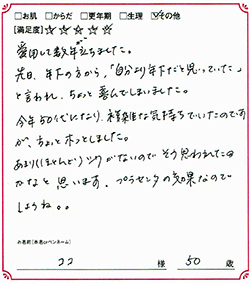 □お肌 □からだ □更年期 □生理 ☑その他
[満足度]☆☆☆☆☆
愛用して数年立ちました。
先日、年下の方から、「自分より年下だと思っていた」
と言われ、ちょっと喜んでしまいました。
今年50代になり、複雑な気持ちでいたのです
が、ちょっとホッとしました。
あまり(ほとんど)シワがないので そう思われたの
かなと 思います。プラセンタの効果なので
しょうね。。
お名前[本名orペンネーム]
22 様 50 歳